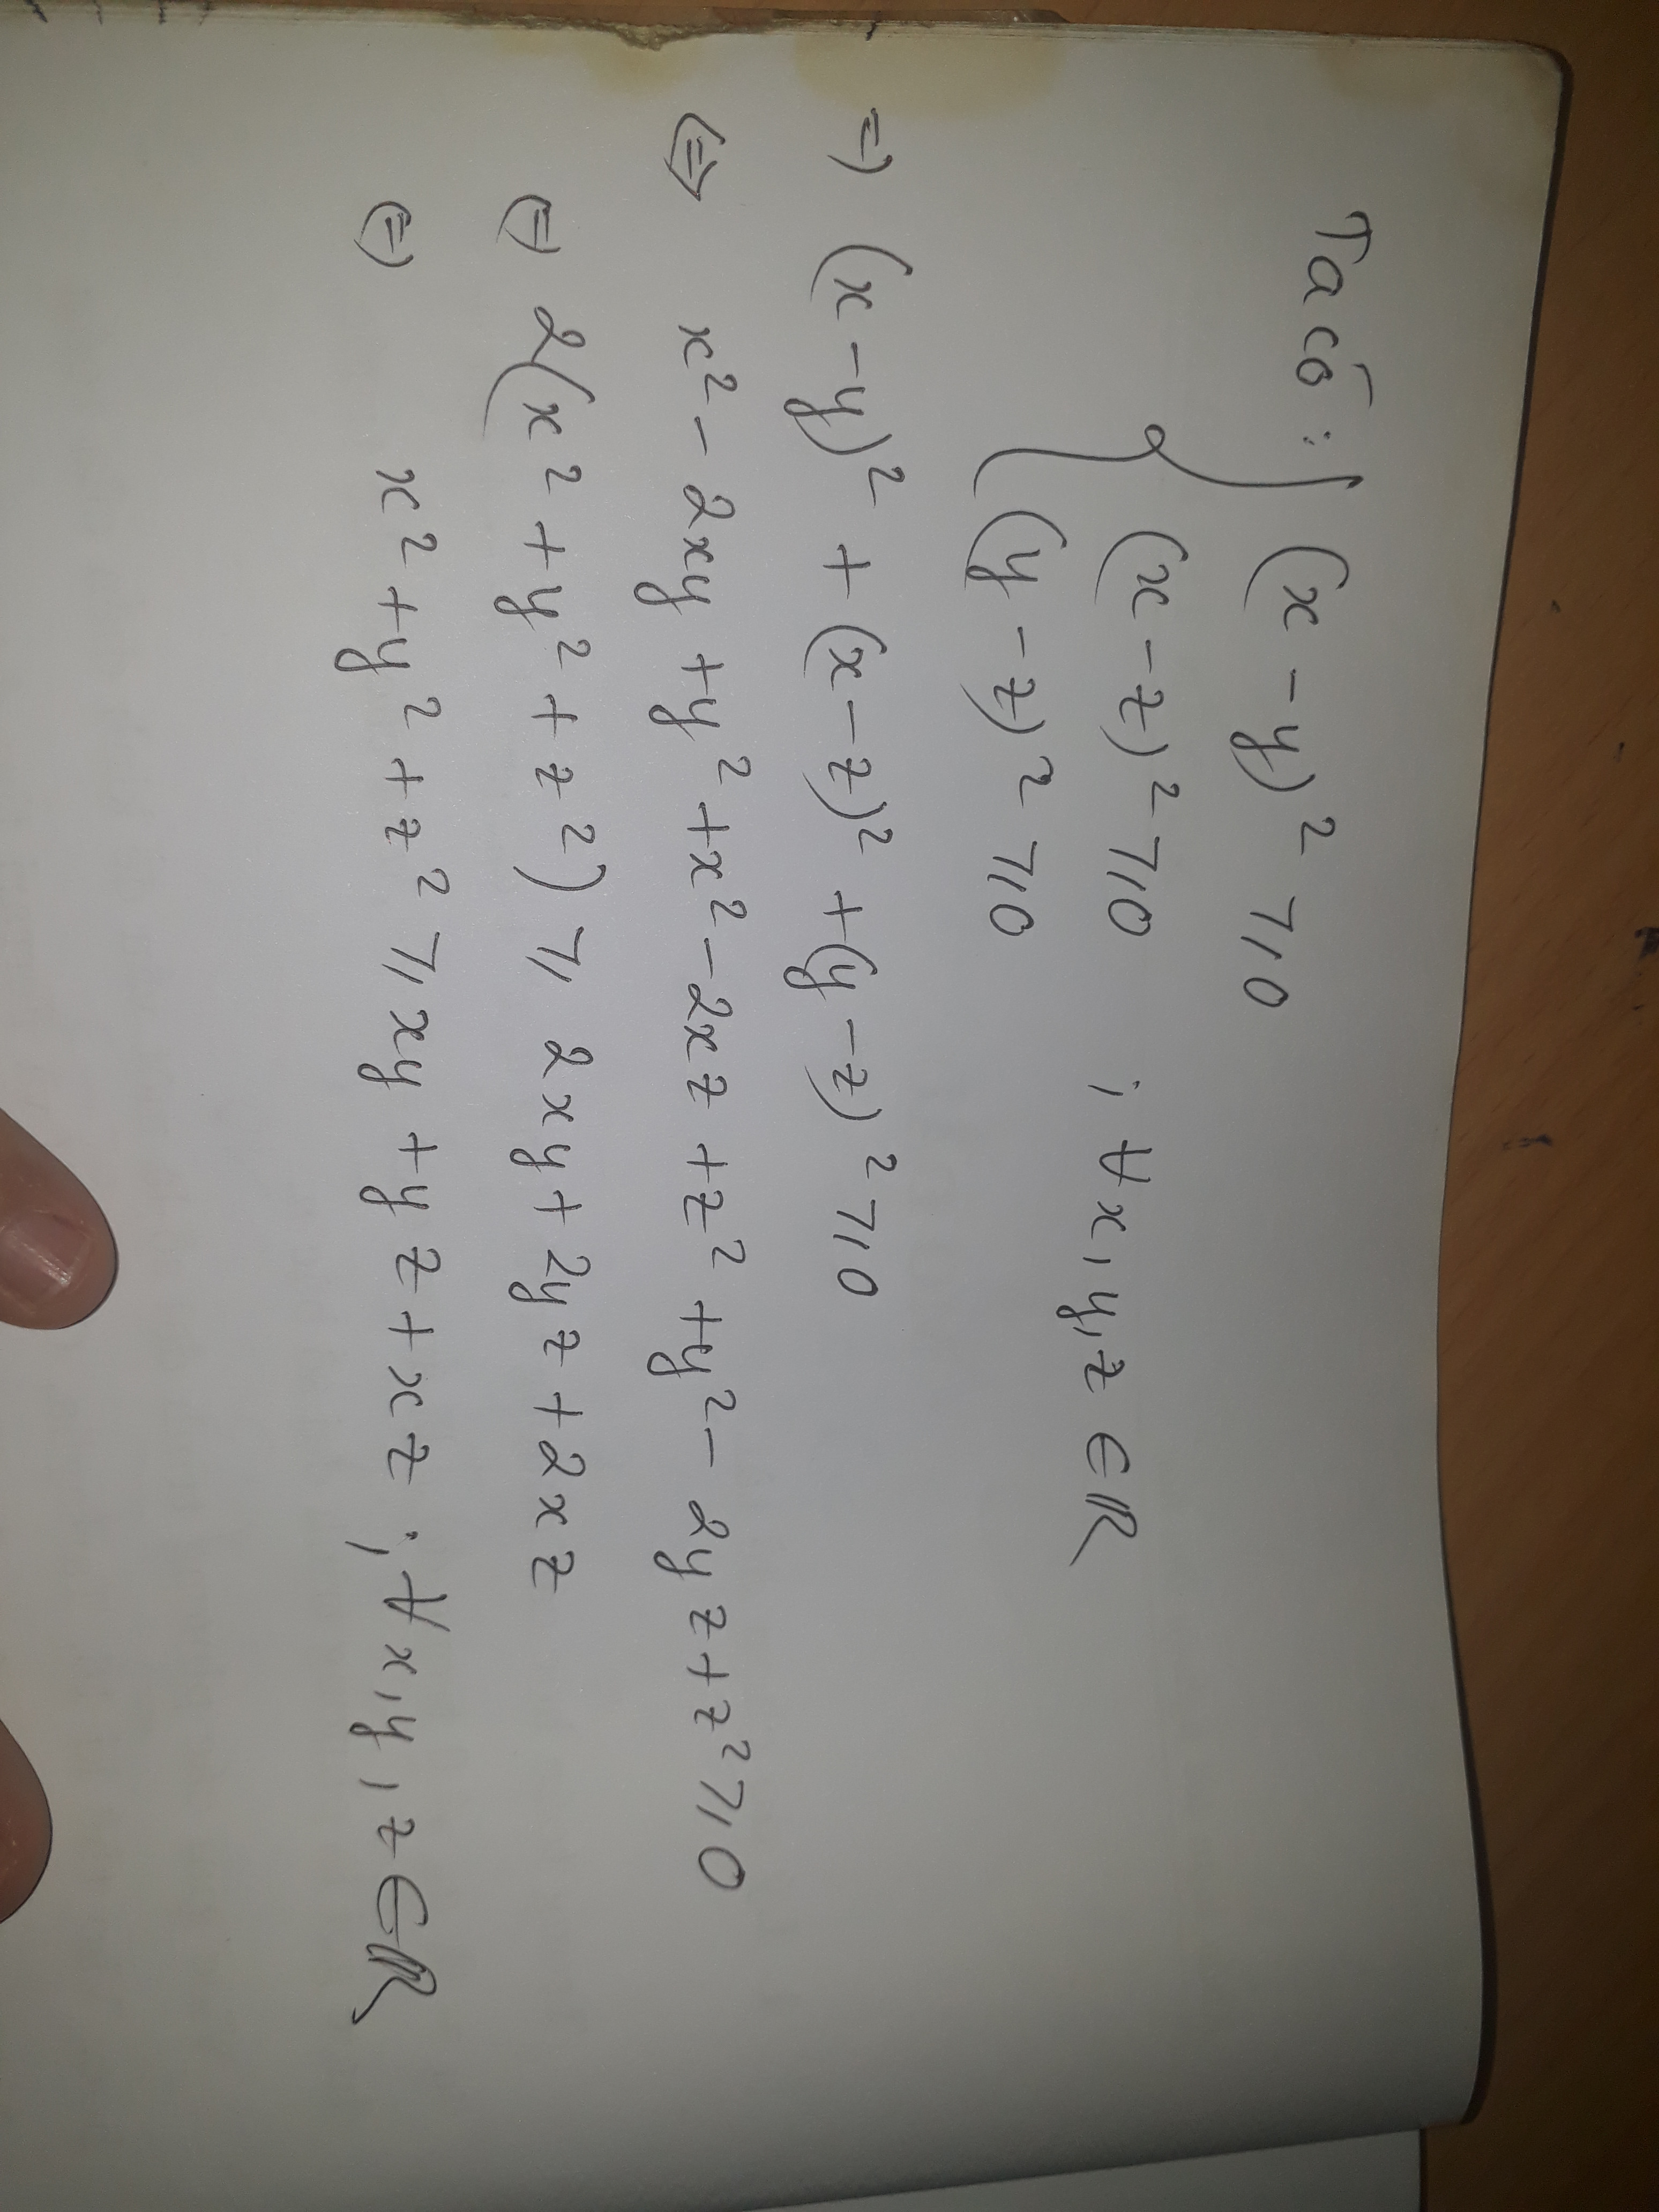 Ta có : { (x - y)² ⩾ 0
(x - z)² ⩾ 0 ; ∀x, y, z ∈ ℝ
(y - z)² ⩾ 0
⇒ (x - y)² + (x - z)² + (y - z)² ⩾ 0
⇔ x² - 2xy + y² + x² - 2xz + z² + y² - 2yz + z² ⩾ 0
⇔ 2(x² + y² + z²) ⩾ 2xy + 2yz + 2xz
⇔ x² + y² + z² ⩾ xy + yz + xz ; ∀x, y, z ∈ ℝ